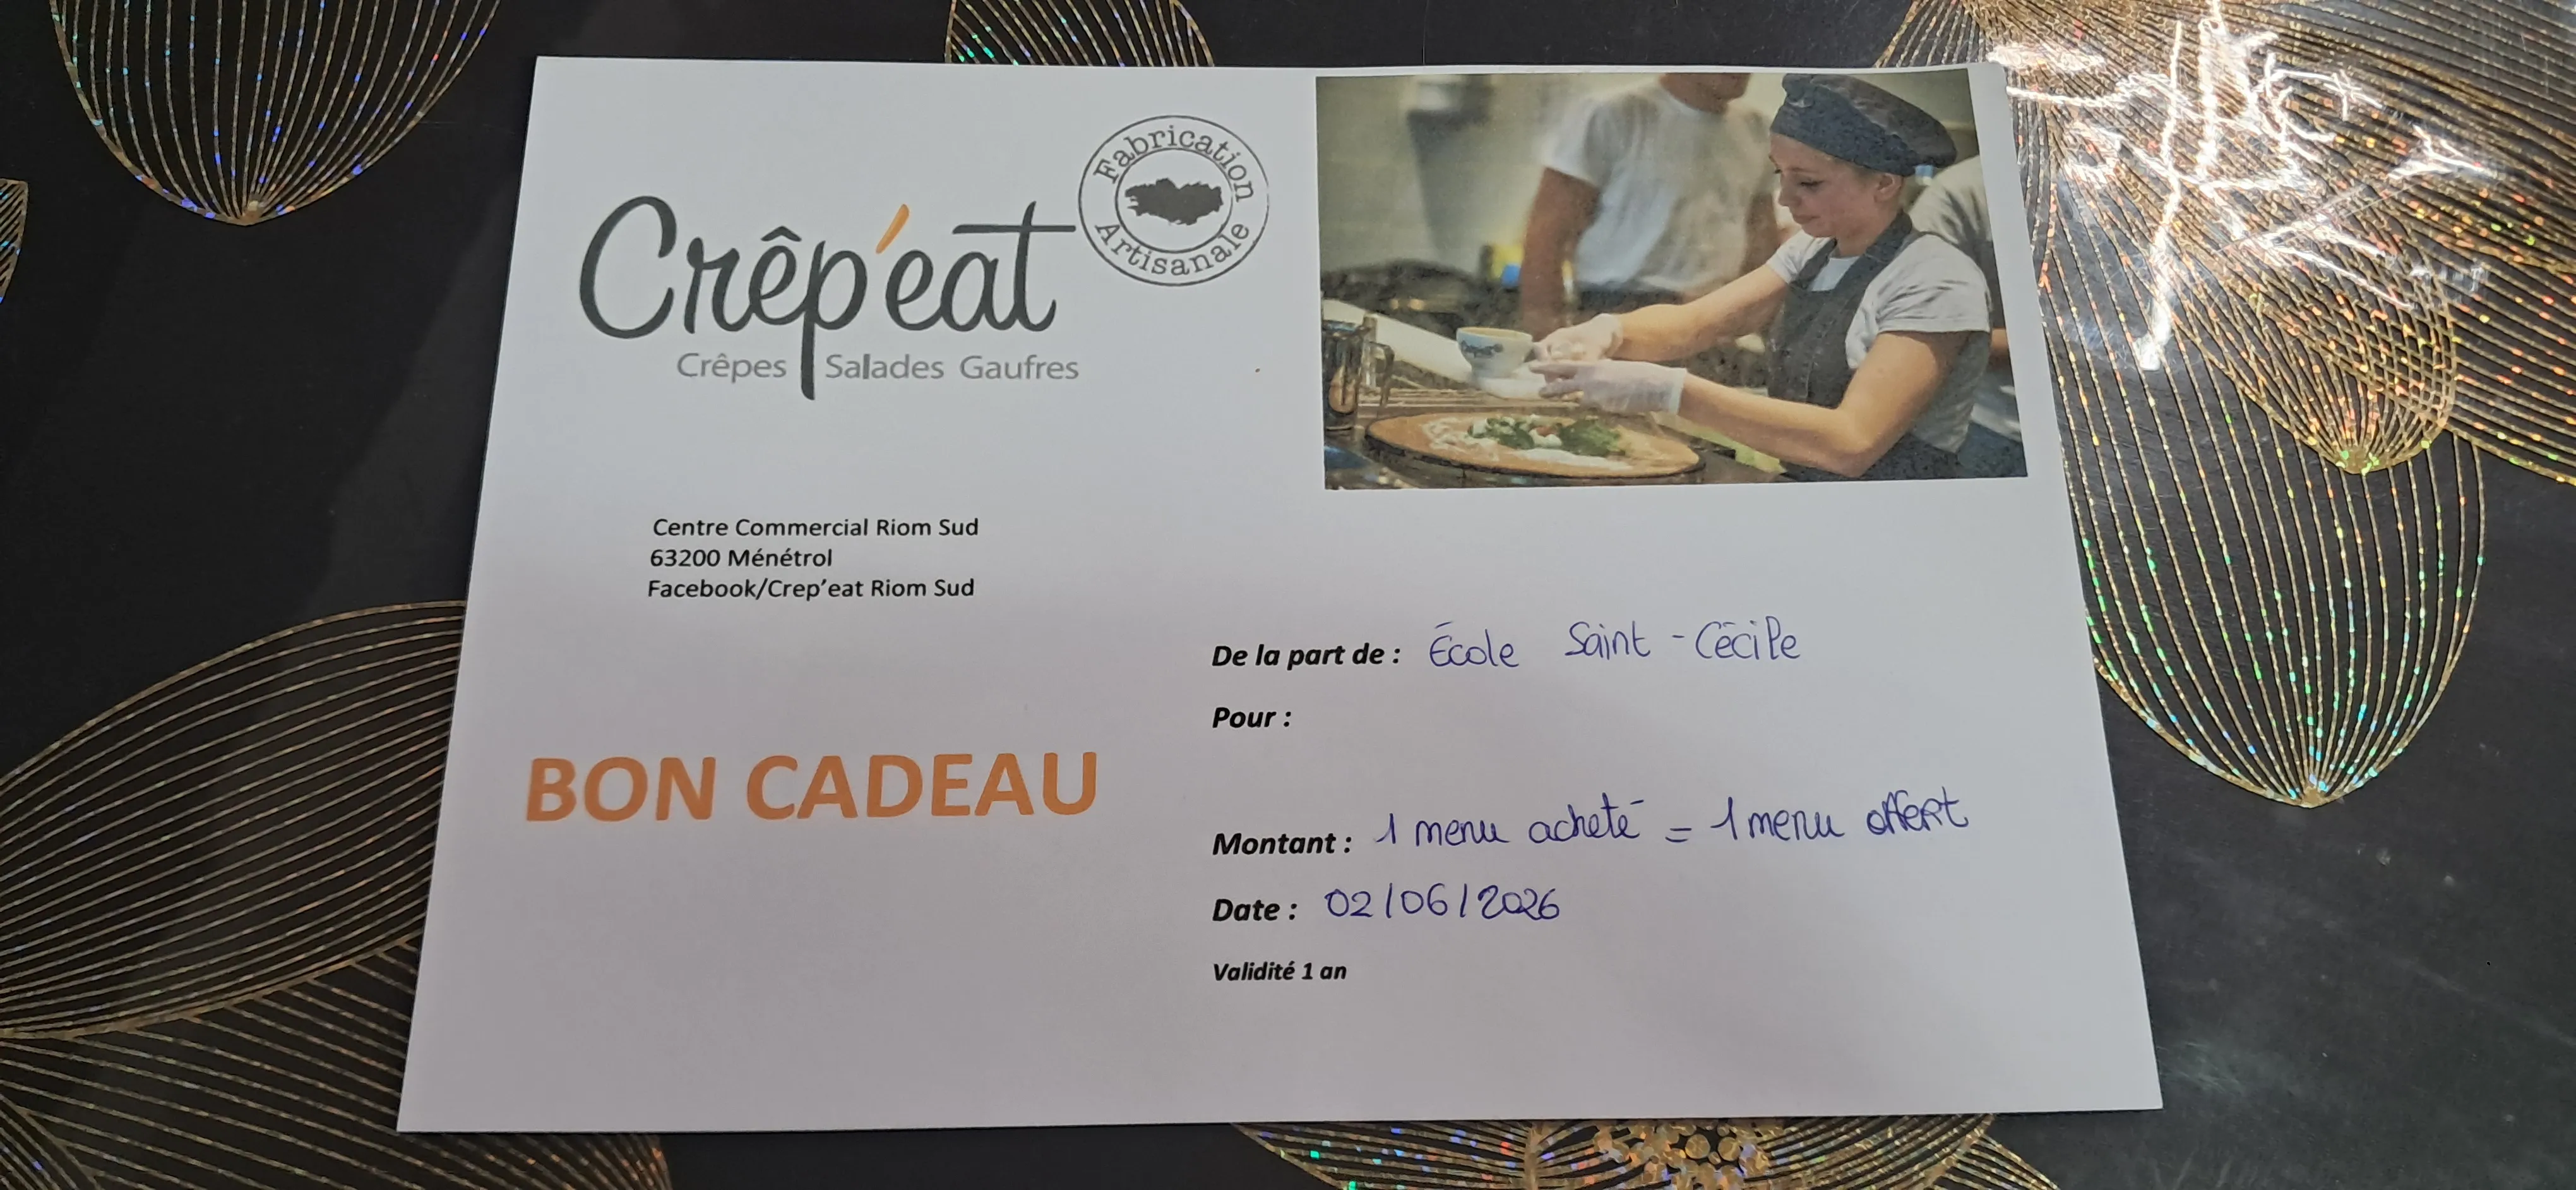 Crêp'eat
Fabrication Artisanale
Crêpes Salades Gaufres
Centre Commercial Riom Sud
63200 Ménétrol
Facebook/Crep'eat Riom Sud
BON CADEAU
De la part de : École Saint-Cécile
Pour :
Montant : 1 menu acheté = 1 menu offert
Date : 02/06/2026
Validité 1 an